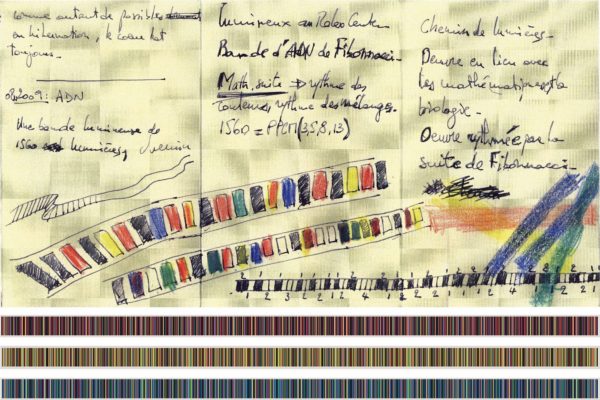 comme autant de possibles
en hibernation, le cœur bat
toujours.
02/2009: ADN
Une bande lumineuse de
1560 lumières,
lumineux au Rolex Center
Bande d'ADN de Fibonacci.
Math. suite rythme des
couleurs, rythme des mélanges.
1560 = PPCM(3,5,8,13)
Chemin de lumières.
Oeuvre en lien avec
les mathématiques, la
biologie.
Oeuvre rythmée par la
suite de Fibonacci.